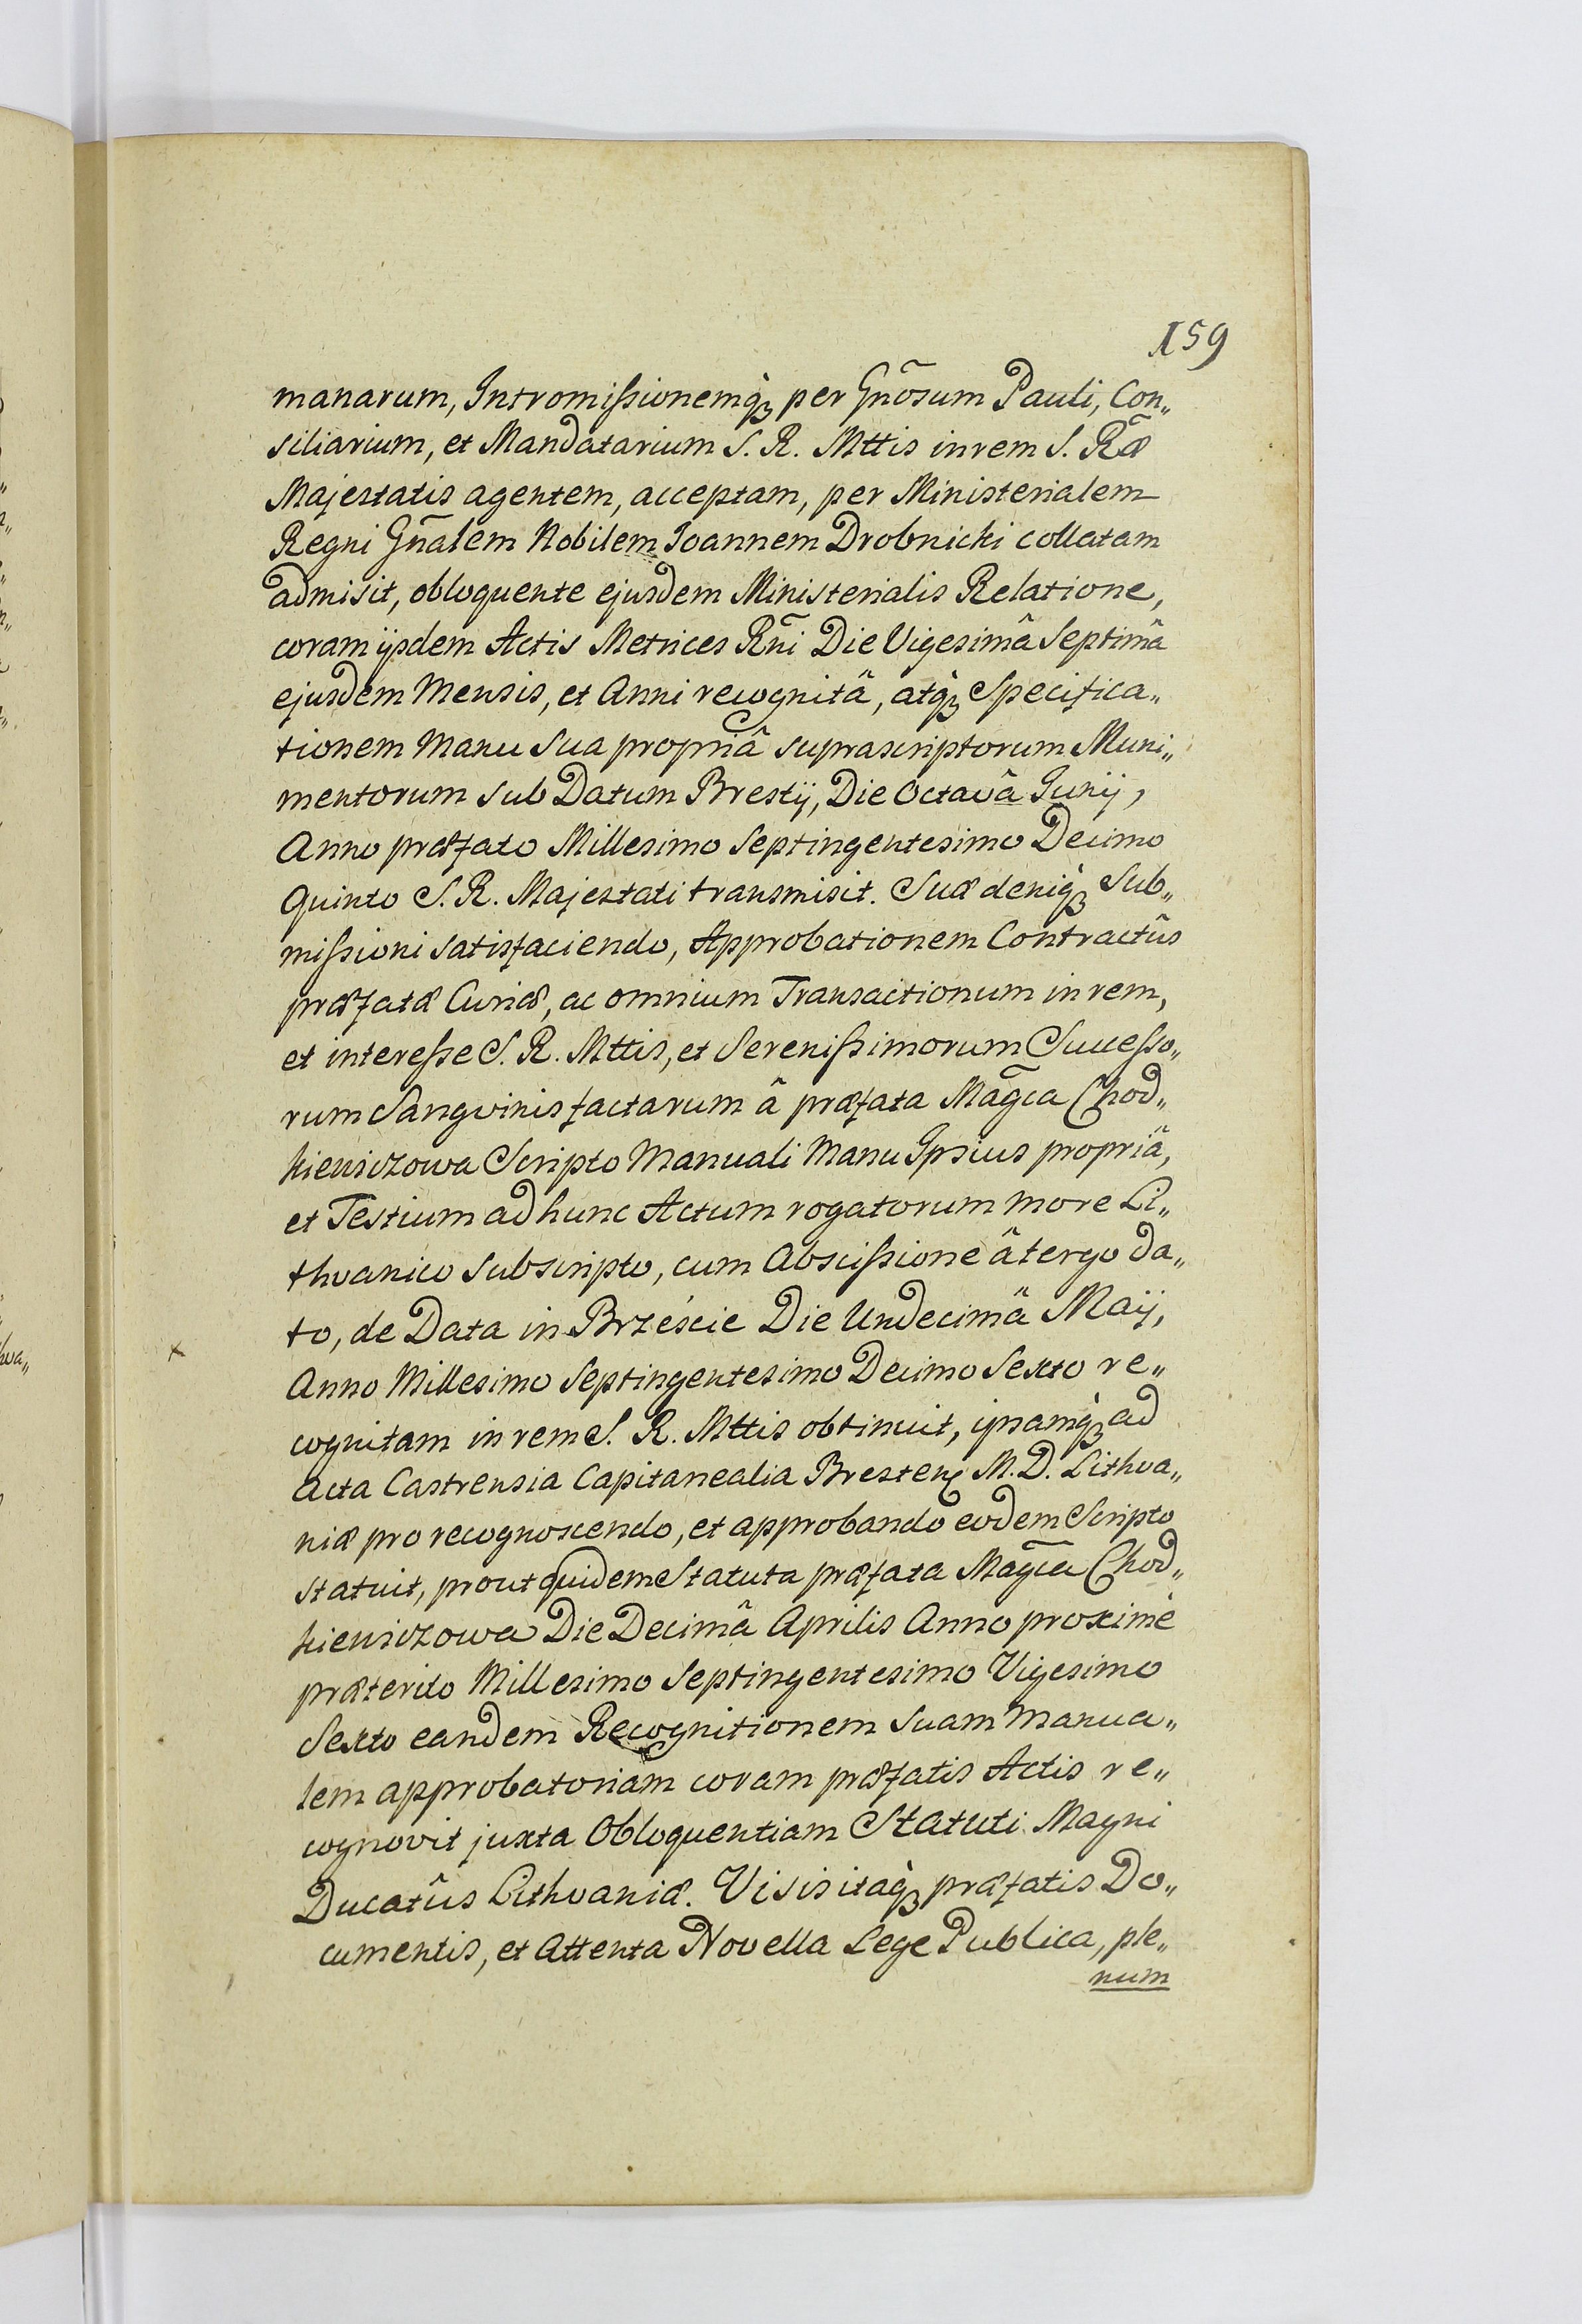 159
manarum, Intromissionemq́ꝫ per Gñosum Pauli, Con„
siliarium, et Mandatarium S. R. Mttis in rem S. Ræ̃
Majestatis agentem, acceptam, per Ministerialem
Regni Gñalem Nobilem Joannem Drobnicki collatam
admisit, obloquente ejusdem Ministerialis Relatione,
coram ijsdem Actis Metrices Rñi Die Vigesimâ Septimâ
ejusdem Mensis, et Anni recognitâ, atq́ꝫ Specifica„
tionem Manu Sua propriâ suprascriptorum Muni„
mentorum sub Datum Brestij, Die Octavâ Junij,
Anno præfato Millesimo Septingentesimo Decimo
Quinto S. R. Majestati transmisit. Suæ deniq́ꝫ Sub„
missioni satisfaciendo, Approbationem Contractûs
præfatæ Curiæ, ac omnium Transactionum in rem,
et interesse S. R. Mttis, et Serenissimorum Successo„
rum Sangvinis factarum â præfata Magc̃a Chod„
kiewiczowa Scripto Manuali Manu Ipsius propriâ,
et Testium ad hunc Actum rogatorum more Li„
thvanico subscripto, cum Abscissione â tergo da„
to, de Data in Brzeście Die Undecimâ Maij,
x
Anno Millesimo Septingentesimo Decimo Sexto re„
cognitam in rem S. R. Mttis obtinuit, ipsamq́ꝫ ad
Acta Castrensia Capitanealia Bresteñ M. D. Lithva„
niæ pro recognoscendo, et approbando eodem Scripto
statuit, prout quidem Statuta præfata Magc̃a Chod„
kiewiczowa Die Decimâ Aprilis Anno proximè
præterito Millesimo Septingentesimo Vigesimo
Sexto eandem Recognitionem suam Manua„
lem approbatoriam coram præfatis Actis re„
cognovit juxta Obloquentiam Statuti Magni
Ducatûs Lithvaniæ. Visis itaq́ꝫ præfatis Do„
cumentis, et Attenta Novella Lege Publica, ple„
num